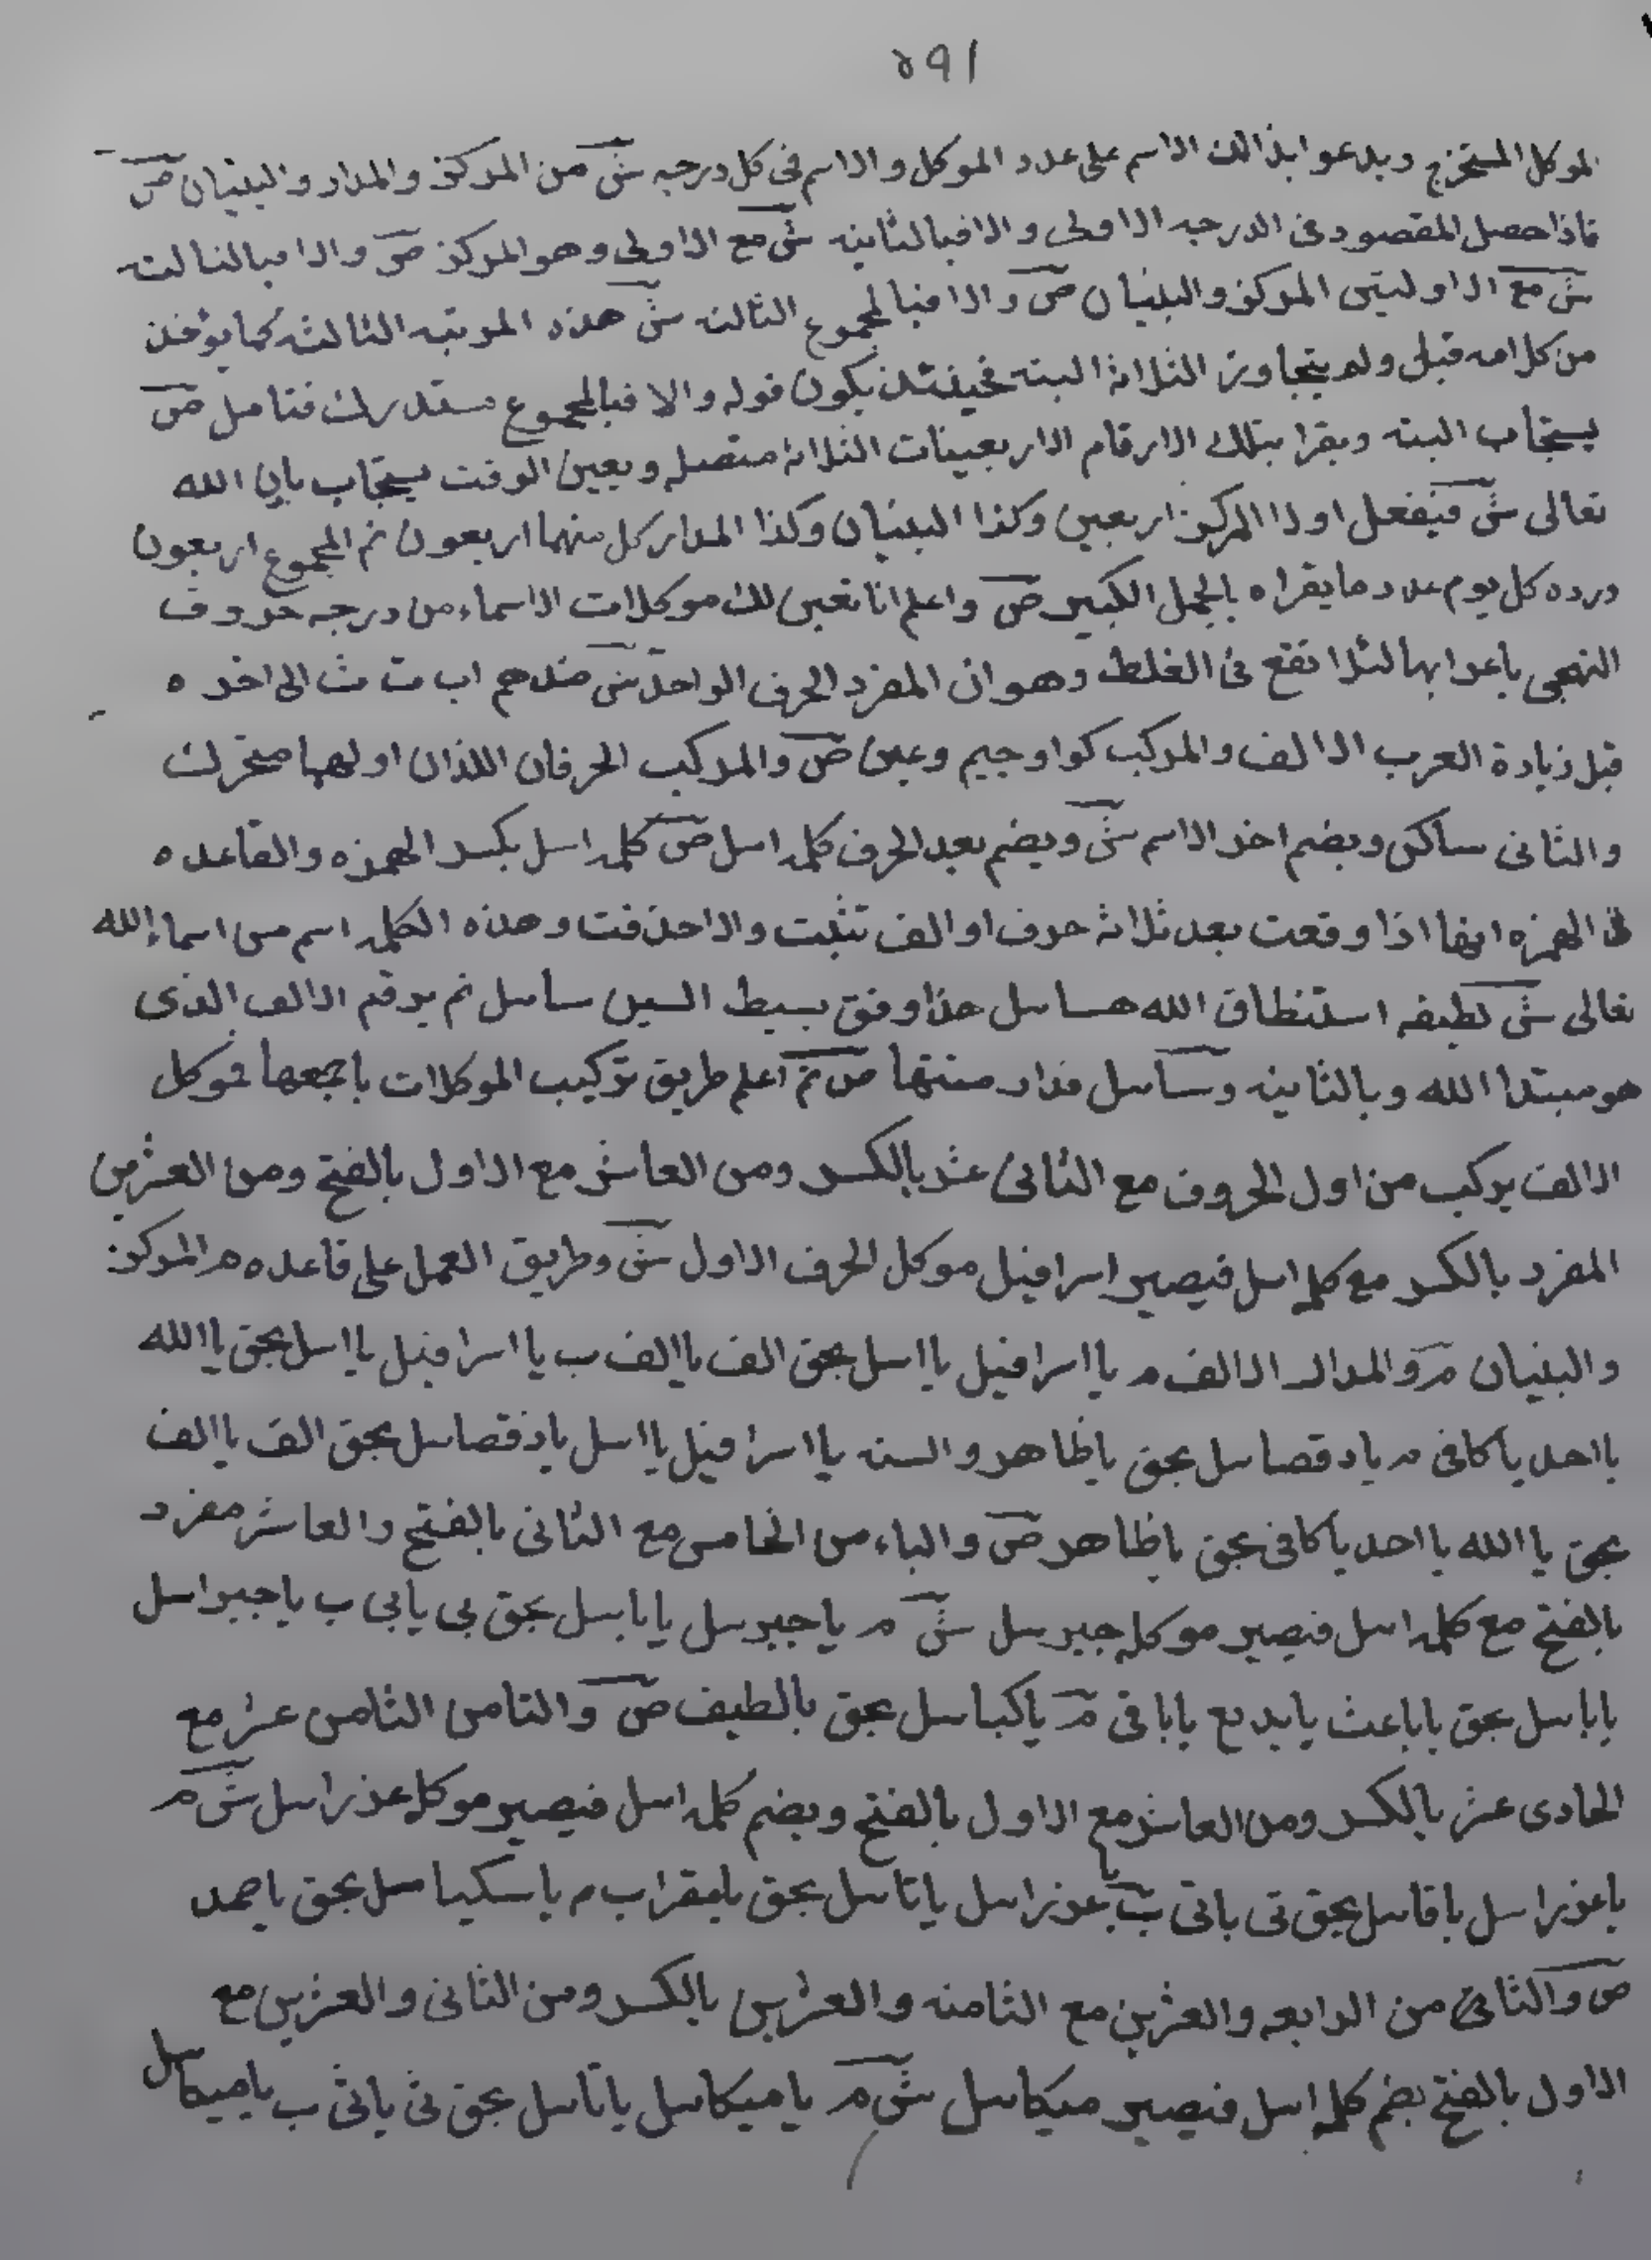 ١٩٥
الموكل المستخرج ويدعوا بذالك الاسم على عدد الموكل والاسم فى كل درجه ش من المركز والمدار والبنيان ص
فاذا حصل المقصود فى الدرجه الاولى والا فبالثانيه ش مع الاولى وهو المركز ص والا فبالثالثه
ش مع الاوليتى المركز والبنيان ص والا فبالمجموع الثالثه ش هذه المرتبه الثالثه كما يؤخذ
من كلامه قبلى ولم يتجاوز الثلاثة البته فحينئذ يكون قوله والا فبالمجموع مستدرك فتامل ص
يستجاب البته ويقرا بتلك الارقام الاربعينات الثلاثة متصله ويعين الوقت يستجاب باذن الله
تعالى ش فيفعل اولا المركز اربعين وكذا البنيان وكذا المدار كل منهما اربعون ثم المجموع اربعون
ورده كل يوم عدد ما يقراه بالجمل الكبير ص واعلم انا نعين لك موكلات الاسماء من درجه حروف
التهجى باعرابها لئلا تقع فى الغلط وهو ان المفرد الحرف الواحد ش عندهم اب ت ث الى اخره
قبل زيادة العرب الالف والمركب كواو جيم وعين ص والمركب الحرفان اللذان اولهما متحرك
والثانى ساكن ويضم اخر الاسم ش ويضم بعد الحرف كلمه اسل ص كلمه اسل بكسر الهمزه والقاعده
فى الهمزه انها اذا وقعت بعد ثلاثة حرف او الف تثبت والا حذفت وهذه الكلمه اسم من اسماء الله
تعالى ش لطيفه استنطاق الله هساسل هذا وفق بسيط السين ساسل ثم يرقم الالف الذى
هو مبتدا الله وبالثانيه وساسل مدار منتها ص ثم اعلم طريق تركيب الموكلات باجمعها فموكل
الالف يركب من اول الحروف مع الثانى عشر بالكسر ومن العاشر مع الاول بالفتح ومن العشرين
المفرد بالكسر مع كلمه اسل فيصير اسرافيل موكل الحرف الاول ش وطريق العمل على قاعده م المركز
والبنيان م والمدار الالف م يا اسرافيل يا اسل بحق الف يا الف ب يا اسرافيل يا اسل بحق يا الله
يا احد يا كافى م يا دقصاسل بحق يا ظاهر والسته يا اسرافيل يا اسل يا دقصاسل بحق الف يا الف
بحق يا الله يا احد يا كافى بحق يا ظاهر ص والباء من الخامس مع الثانى بالفتح والعاشر مفرد
بالفتح مع كلمه اسل فيصير موكله جبرسل ش م يا جبرسل يا باسل بحق بى يا بى ب يا جبراسل
يا باسل بحق يا باعث يا بديع يا باقى م يا كباسل بحق يا لطيف ص والتا من الثامن عشر مع
الحادى عشر بالكسر ومن العاشر مع الاول بالفتح ويضم كلمه اسل فيصير موكل عزراسل ش م
يا عزراسل يا تاسل بحق تى ياتى ب يا عزراسل يا تاسل بحق يا تواب م يا سكياسل بحق يا صمد
ص والثانى من الرابعه والعشرين مع الثامنه والعشرين بالكسر ومن الثانى والعشرين مع
الاول بالفتح بضم كلمه اسل فيصير ميكاسل ش م يا ميكاسل يا ثاسل بحق ثى ياثى ب يا ميكاسل